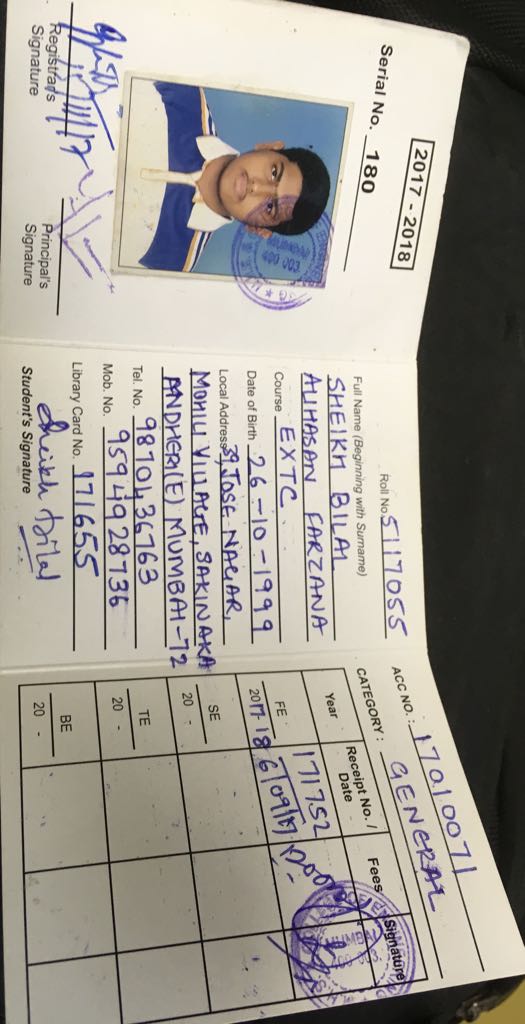 2017 - 2018
Serial No. 180
MUMBAI
400 003
Registrar's
Signature
Principal's
Signature
Roll No. 5117055
Full Name (Beginning with Surname)
SHEIKH BILAL
ALIHASAN FARZANA
Course EXTC
Date of Birth 26-10-1999
Local Address 39, JOSE NAGAR,
MOHILI VILLAGE, SAKINAKA
ANDHERI(E) MUMBAI-72
Tel. No. 9870436763
Mob. No. 9594928736
Library Card No. 171655
Sheikh bilal
Student's Signature
ACC NO.: 17010071
CATEGORY: GENERAL
Year Receipt No. / Date Fees Signature
FE 2017-18 171752 6/09/17
SE 20 -
TE 20 -
BE 20 -
MUMBAI
400 003